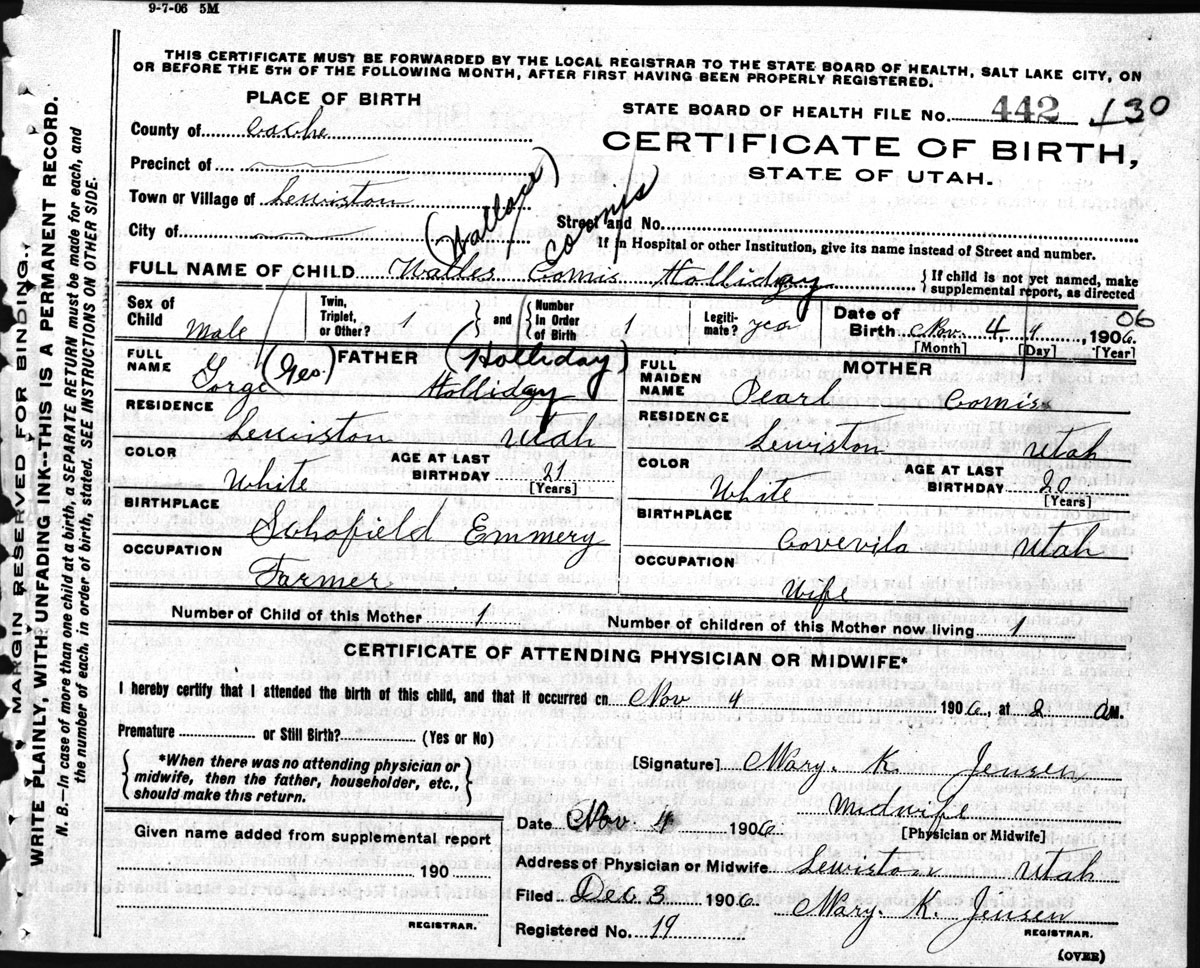 9-7-06 5M
THIS CERTIFICATE MUST BE FORWARDED BY THE LOCAL REGISTRAR TO THE STATE BOARD OF HEALTH, SALT LAKE CITY, ON
OR BEFORE THE 5TH OF THE FOLLOWING MONTH, AFTER FIRST HAVING BEEN PROPERLY REGISTERED.
PLACE OF BIRTH
STATE BOARD OF HEALTH FILE No. 442 130
County of Cache
CERTIFICATE OF BIRTH,
STATE OF UTAH.
Precinct of
Town or Village of Lewiston
(Wallace) Comis
City of
Street and No.
If in Hospital or other Institution, give its name instead of Street and number.
FULL NAME OF CHILD Walles Comis Holliday
{If child is not yet named, make
supplemental report, as directed
Sex of Child Male
Twin, Triplet, or Other? 1 } and { Number in Order of Birth 1
Legiti-mate? yes
Date of Birth Nov. 4, 4, 1906. 06
[Month] [Day] [Year]
FATHER
MOTHER
FULL NAME Gorge (Geo.) Holliday (Holliday)
FULL MAIDEN NAME Pearl Comis
RESIDENCE Lewiston Utah
RESIDENCE Lewiston Utah
COLOR White
AGE AT LAST BIRTHDAY 21 [Years]
COLOR White
AGE AT LAST BIRTHDAY 20 [Years]
BIRTHPLACE Schofield Emmery
BIRTHPLACE Covevila Utah
OCCUPATION Farmer.
OCCUPATION Wife
Number of Child of this Mother 1
Number of children of this Mother now living 1
CERTIFICATE OF ATTENDING PHYSICIAN OR MIDWIFE*
I hereby certify that I attended the birth of this child, and that it occurred on Nov 4 1906, at 2 AM.
Premature or Still Birth? (Yes or No)
{*When there was no attending physician or
midwife, then the father, householder, etc.,
should make this return.}
[Signature] Mary. K. Jensen
Midwife
[Physician or Midwife]
Date Nov 4 1906
Given name added from supplemental report
190
REGISTRAR.
Address of Physician or Midwife Lewiston Utah
Filed Dec. 3 1906 Mary. K. Jensen
REGISTRAR.
Registered No. 19
(OVER)
MARGIN RESERVED FOR BINDING.
WRITE PLAINLY, WITH UNFADING INK-THIS IS A PERMANENT RECORD.
N. B.—In case of more than one child at a birth, a SEPARATE RETURN must be made for each, and
the number of each, in order of birth, stated. SEE INSTRUCTIONS ON OTHER SIDE.